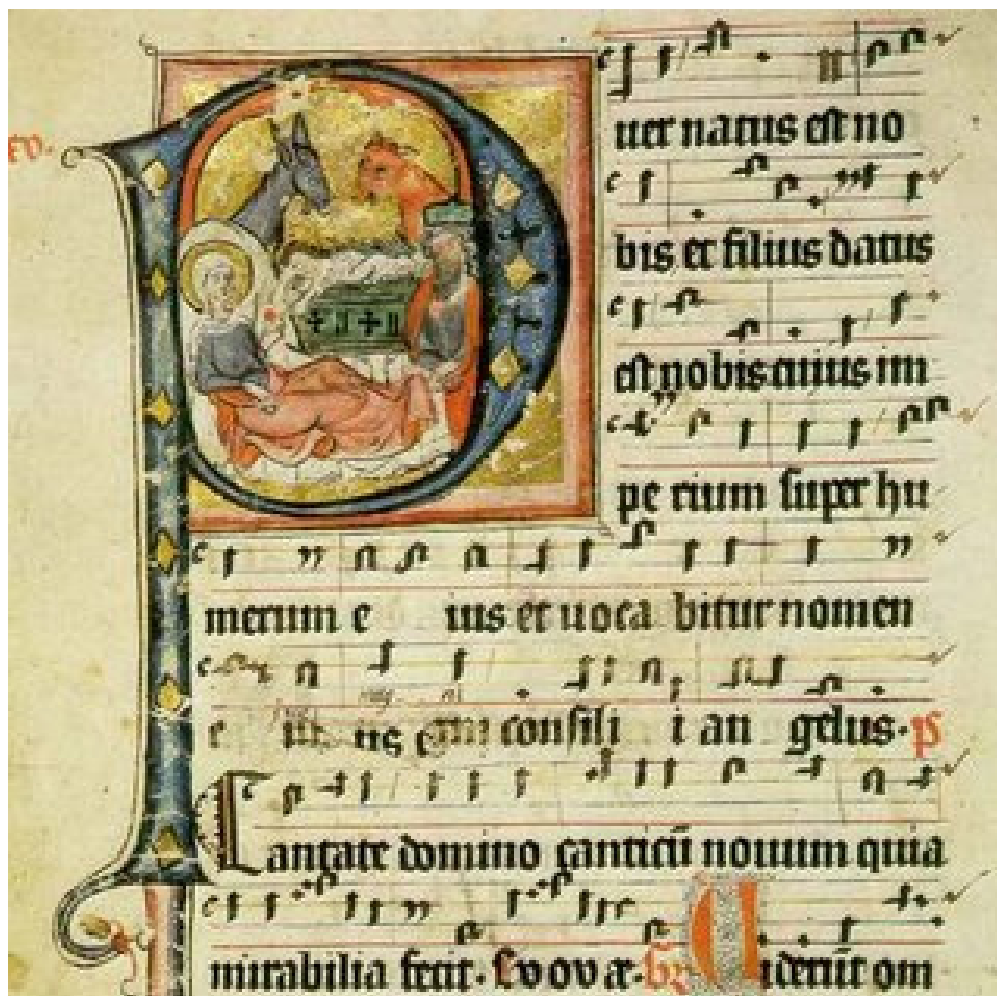 P uer natus est no
bis et filius datus
est nobis cuius im
pe rium super hu
merum e ius et uoca bitur nomen
e ius consili i an gelus. ps
Cantate domino canticū nouum quia
mirabilia fecit. Euouae. Uiderūt om